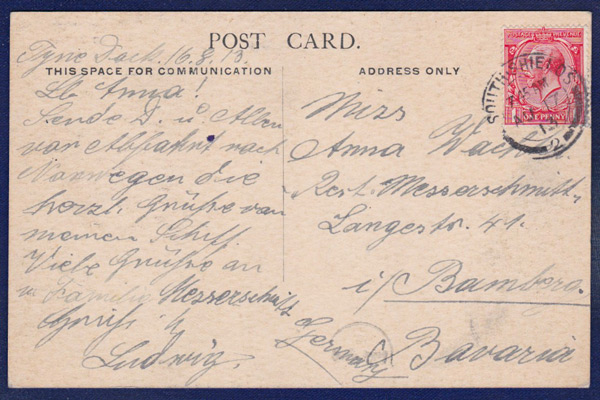 POST CARD.
Tyne Dock. 16.8.13.
THIS SPACE FOR COMMUNICATION
Lb. Anna!
Sende D. u. Allen
vor Abfahrt nach
Norwegen die
herzl. Grüße von
meinem Schiff.
Viele Grüße an
Familie Messerschmitt
Gruß
Ludwig.
ADDRESS ONLY
Miss
Anna
Rest. Messerschmitt,
Langestr. 41.
i/ Bamberg.
Germany Bavaria
POSTAGE REVENUE
ONE PENNY
SOUTH SHIELDS
2